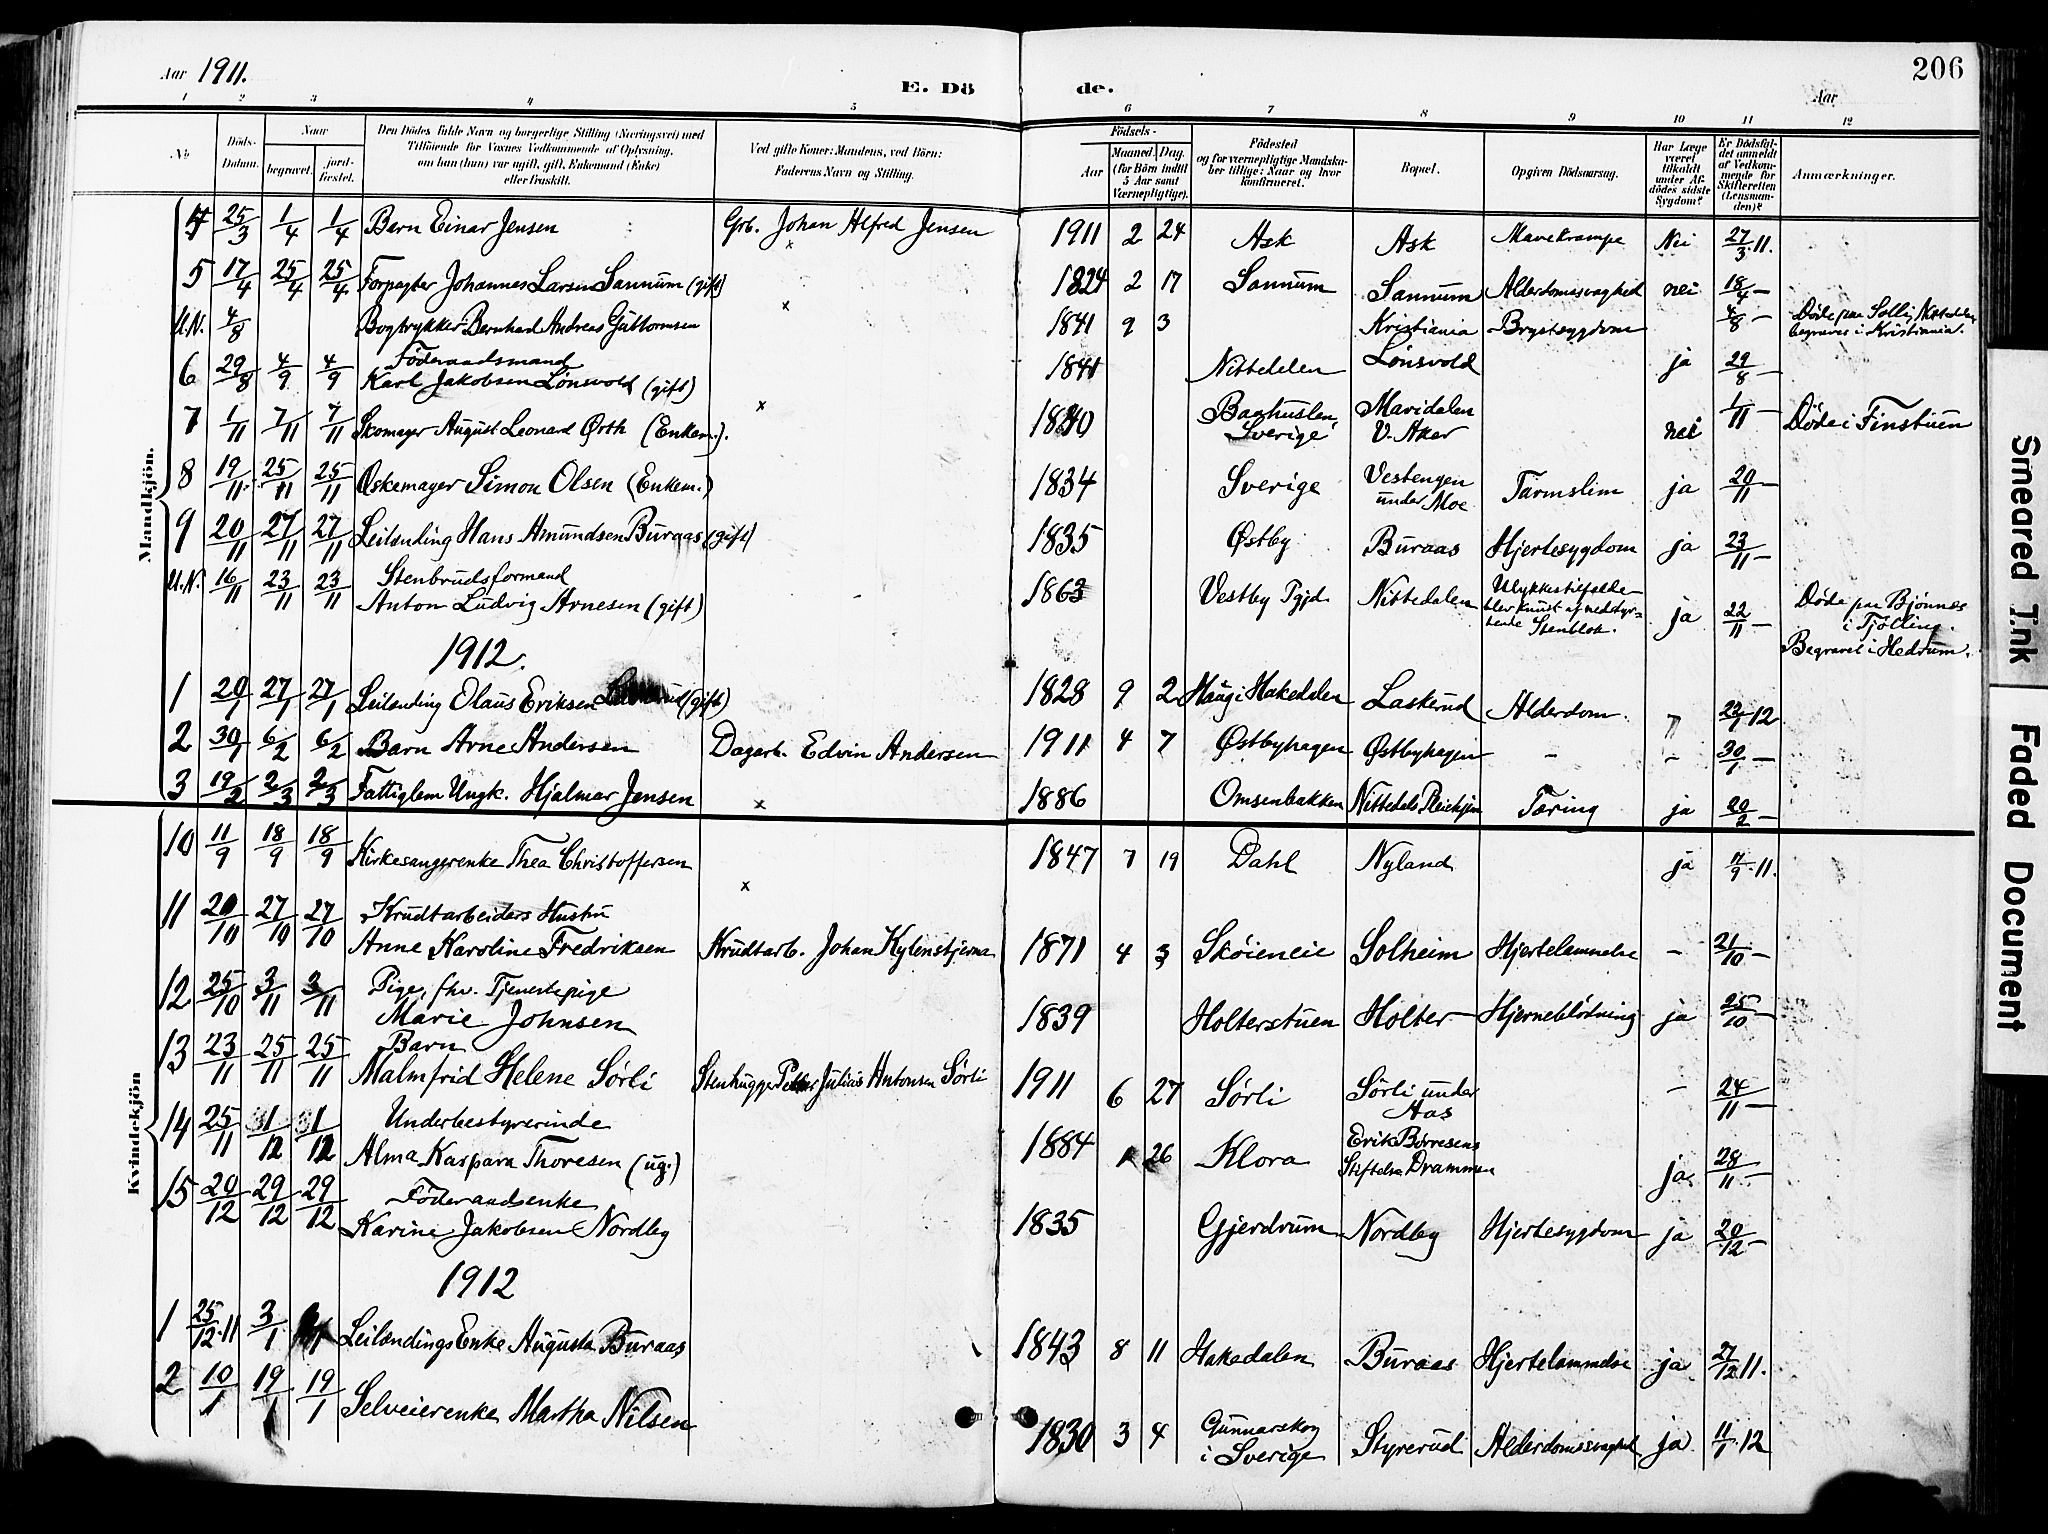 Aar 1911.
E. Dö de.
Aar
206
1 2 3 4 5 6 7 8 9 10 11 12
№
Döds-Datum.
Naar
begravet.
jord-fæstet.
Den Dödes fulde Navn og borgerlige Stilling (Næringsvei) med
Tilföiende for Voxnes Vedkommende af Oplysning,
om han (hun) var ugift, gift, Enkemand (Enke)
eller fraskilt.
Ved gifte Koner: Mandens, ved Börn:
Faderens Navn og Stilling.
Födsels-
Aar
Maaned. Dag.
(for Börn indtil
5 Aar samt
Værnepligtige).
Födested
og for værnepligtige Mandska-
ber tillige: Naar og hvor
konfirmeret.
Bopæl.
Opgiven Dödsaarsag.
Har Læge
været
tilkaldt
under Af-
dödes sidste
Sygdom?
Er Dödsfal-
det anmeldt
af Vedkom-
mende for
Skifteretten
(Lensman-
den)?
Anmærkninger.
Mandkjön.
4 25/3 1/4 1/4 Barn Einar Jensen Grb. Johan Alfred Jensen 1911 2 24 Ask Ask Mavekrampe Nei 27/3 11.
5 17/4 25/4 25/4 Forpagter Johannes Larsen Sannum (gift) 1824 2 17 Sannum Sannum Alderdomssvaghed nei 18/4 —
U.N. 4/8 Bogtrykker Bernhard Andreas Guttormsen 1841 9 3 Kristiania Brystsygdom 4/8 — Döde paa Solli, Nittedalen,
begraves i Kristiania.
6 29/8 4/9 4/9 Föderaadsmand
Karl Jakobsen Lönsvold (gift) 1841 Nittedalen Lönsvold ja 29/8 —
7 1/11 7/11 7/11 Skomager August Leonard Örth (Enkem.). 1840 Baahuslen,
Sverige Maridalen
V. Aker nei 1/11 — Döde i Finstuen
8 19/11 25/11 25/11 Æskemager Simon Olsen (Enkem.) 1834 Sverige Vestengen
under Moe Tarmslim ja 20/11 —
9 20/11 27/11 27/11 Leilænding Hans Amundsen Buraas (gift) 1835 Østby Buraas Hjertesygdom ja 23/11 —
U.N. 16/11 23/11 23/11 Stenbrudsformand
Anton Ludvig Arnesen (gift) 1863 Vestby Pgjd. Nittedalen Ulykkestilfælde—
blev knust af nedstyr-
tende Stenblok. ja 22/11 — Döde paa Bjönnes
i Tjölling.
Begravet i Hedrum.
1912.
1 20/1 27/1 27/1 Leilænding Olaus Eriksen Laskerud (gift) 1828 9 2 Haug i Hakedalen Laskerud Alderdom. " 22/1 12
2 30/1 6/2 6/2 Barn Arne Andersen Dagarb. Edvin Andersen 1911 4 7 Østbyhagen Østbyhagen — — 30/1 —
3 19/2 2/3 2/3 Fattiglem Ungk. Hjalmar Jensen 1886 Omsenbakken Nittedals Pleiehjem Tæring ja 20/2 —
Kvindekjön
10 11/9 18/9 18/9 Kirkesangerenke Thea Christoffersen 1847 7 19 Dahl Nyland ja 11/9 11.
11 20/10 27/10 27/10 Krudtarbeiders Hustru
Anne Karoline Fredriksen Krudtarb. Johan Kylenstjerna 1871 4 3 Skøieneie Solheim Hjertelammelse — 21/10 —
12 25/10 3/11 3/11 Pige, fhv. Tjenestepige
Marie Johnsen 1839 Holterstuen Holter Hjerneblödning ja 25/10 —
13 23/11 25/11 25/11 Barn
Malmfrid Helene Sørli Stenhugger Petter Julius Antonsen Sørli 1911 6 27 Sørli Sørli under
Aas — 24/11 —
14 25/11 1/12 1/12 Underbestyrerinde
Alma Kaspara Thoresen (ug.) 1884 1 26 Klora Erik Børresens
Stiftelse Drammen ja 28/11 —
15 20/12 29/12 29/12 Föderaadsenke
Karine Jakobsen Nordby 1835 Gjerdrum Nordby Hjertesygdom ja 20/12 —
1912
1 25/12 11 3/1 3/1 Leilændings Enke Augusta Buraas 1843 8 11 Hakedalen Buraas Hjertelammelse ja 27/12 11.
2 10/1 19/1 19/1 Selveierenke Martha Nilsen 1830 3 4 Gunnarskog
i Sverige Styrerud Alderdomssvaghed ja 11/1 12
Smeared Ink
Faded Document